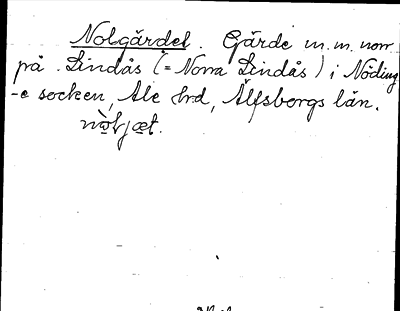 Nolgärdet. Gärde m.m. norr
på Lindås (= Norra Lindås) i Nöding
-e socken, Ale hrd, Älfsborgs län.